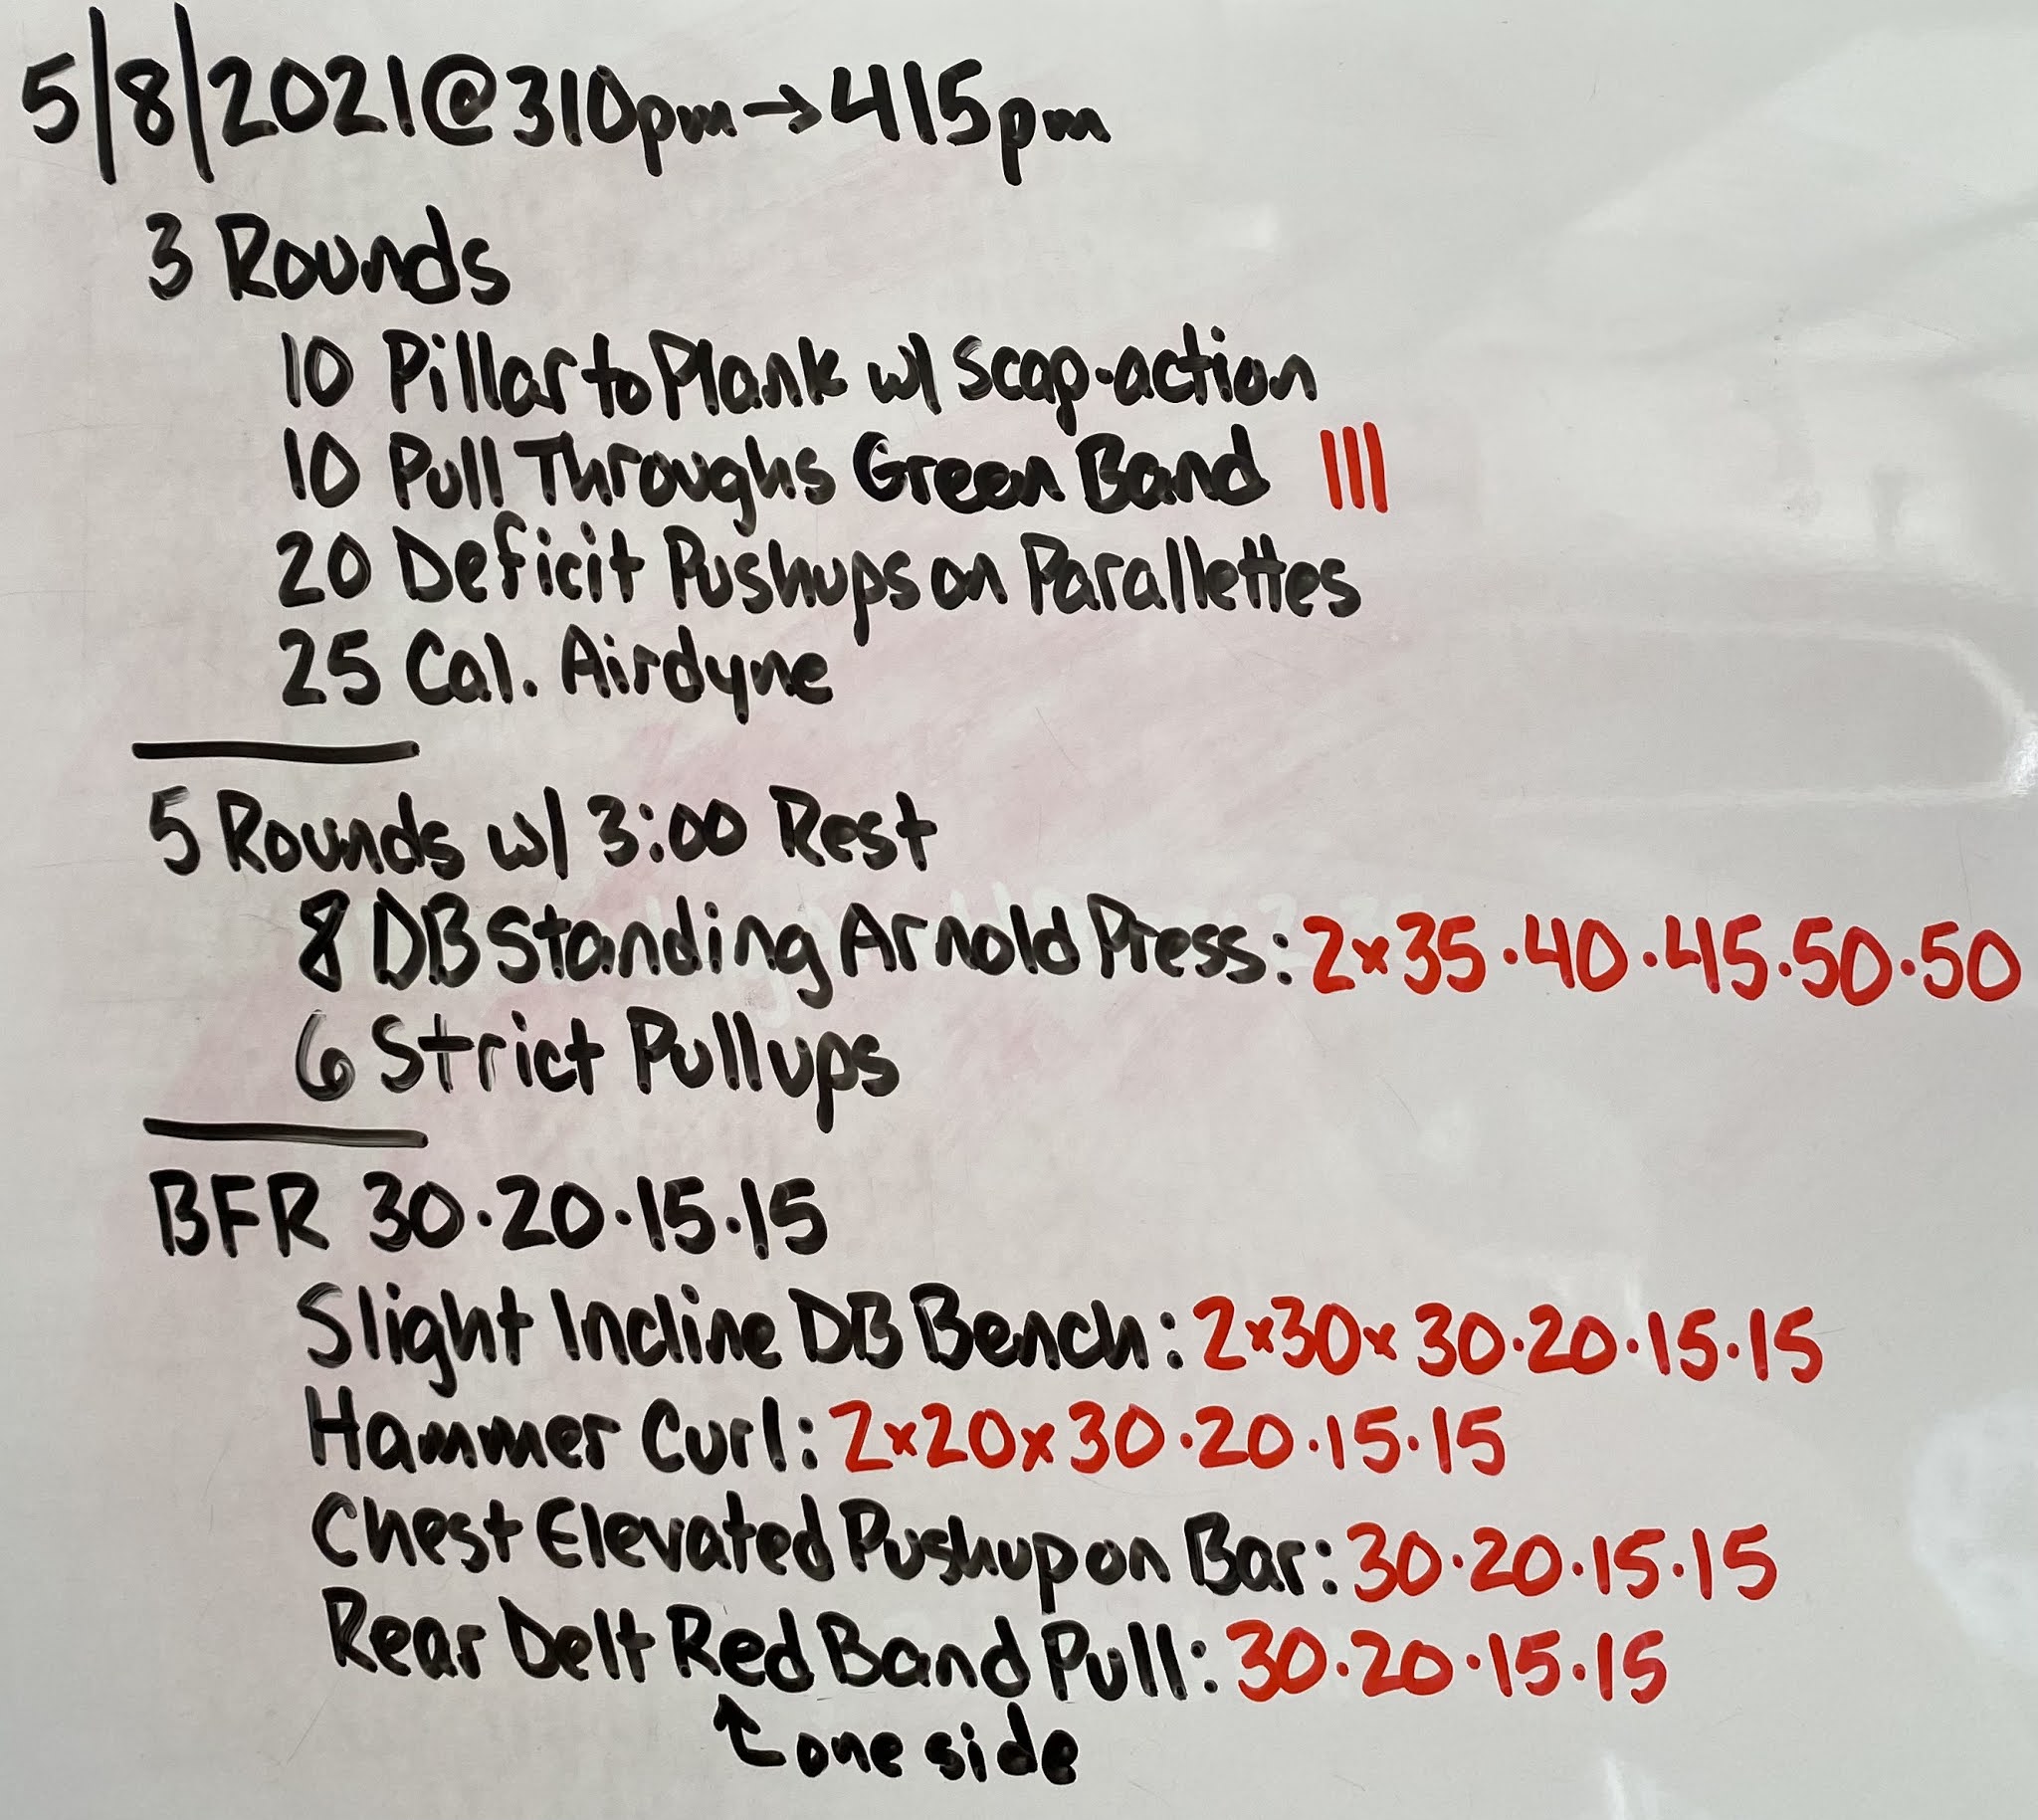 5/8/2021@310pm→415pm
3 Rounds
10 Pillar to Plank w/ scap-action
10 Pull Throughs Green Band |||
20 Deficit Pushups on Parallettes
25 Cal. Airdyne
5 Rounds w/ 3:00 Rest
8 DB Standing Arnold Press: 2x35·40·45·50·50
6 Strict Pullups
BFR 30·20·15·15
Slight Incline DB Bench: 2x30x30·20·15·15
Hammer Curl: 2x20x30·20·15·15
Chest Elevated Pushup on Bar: 30·20·15·15
Rear Delt Red Band Pull: 30·20·15·15
↑ one side